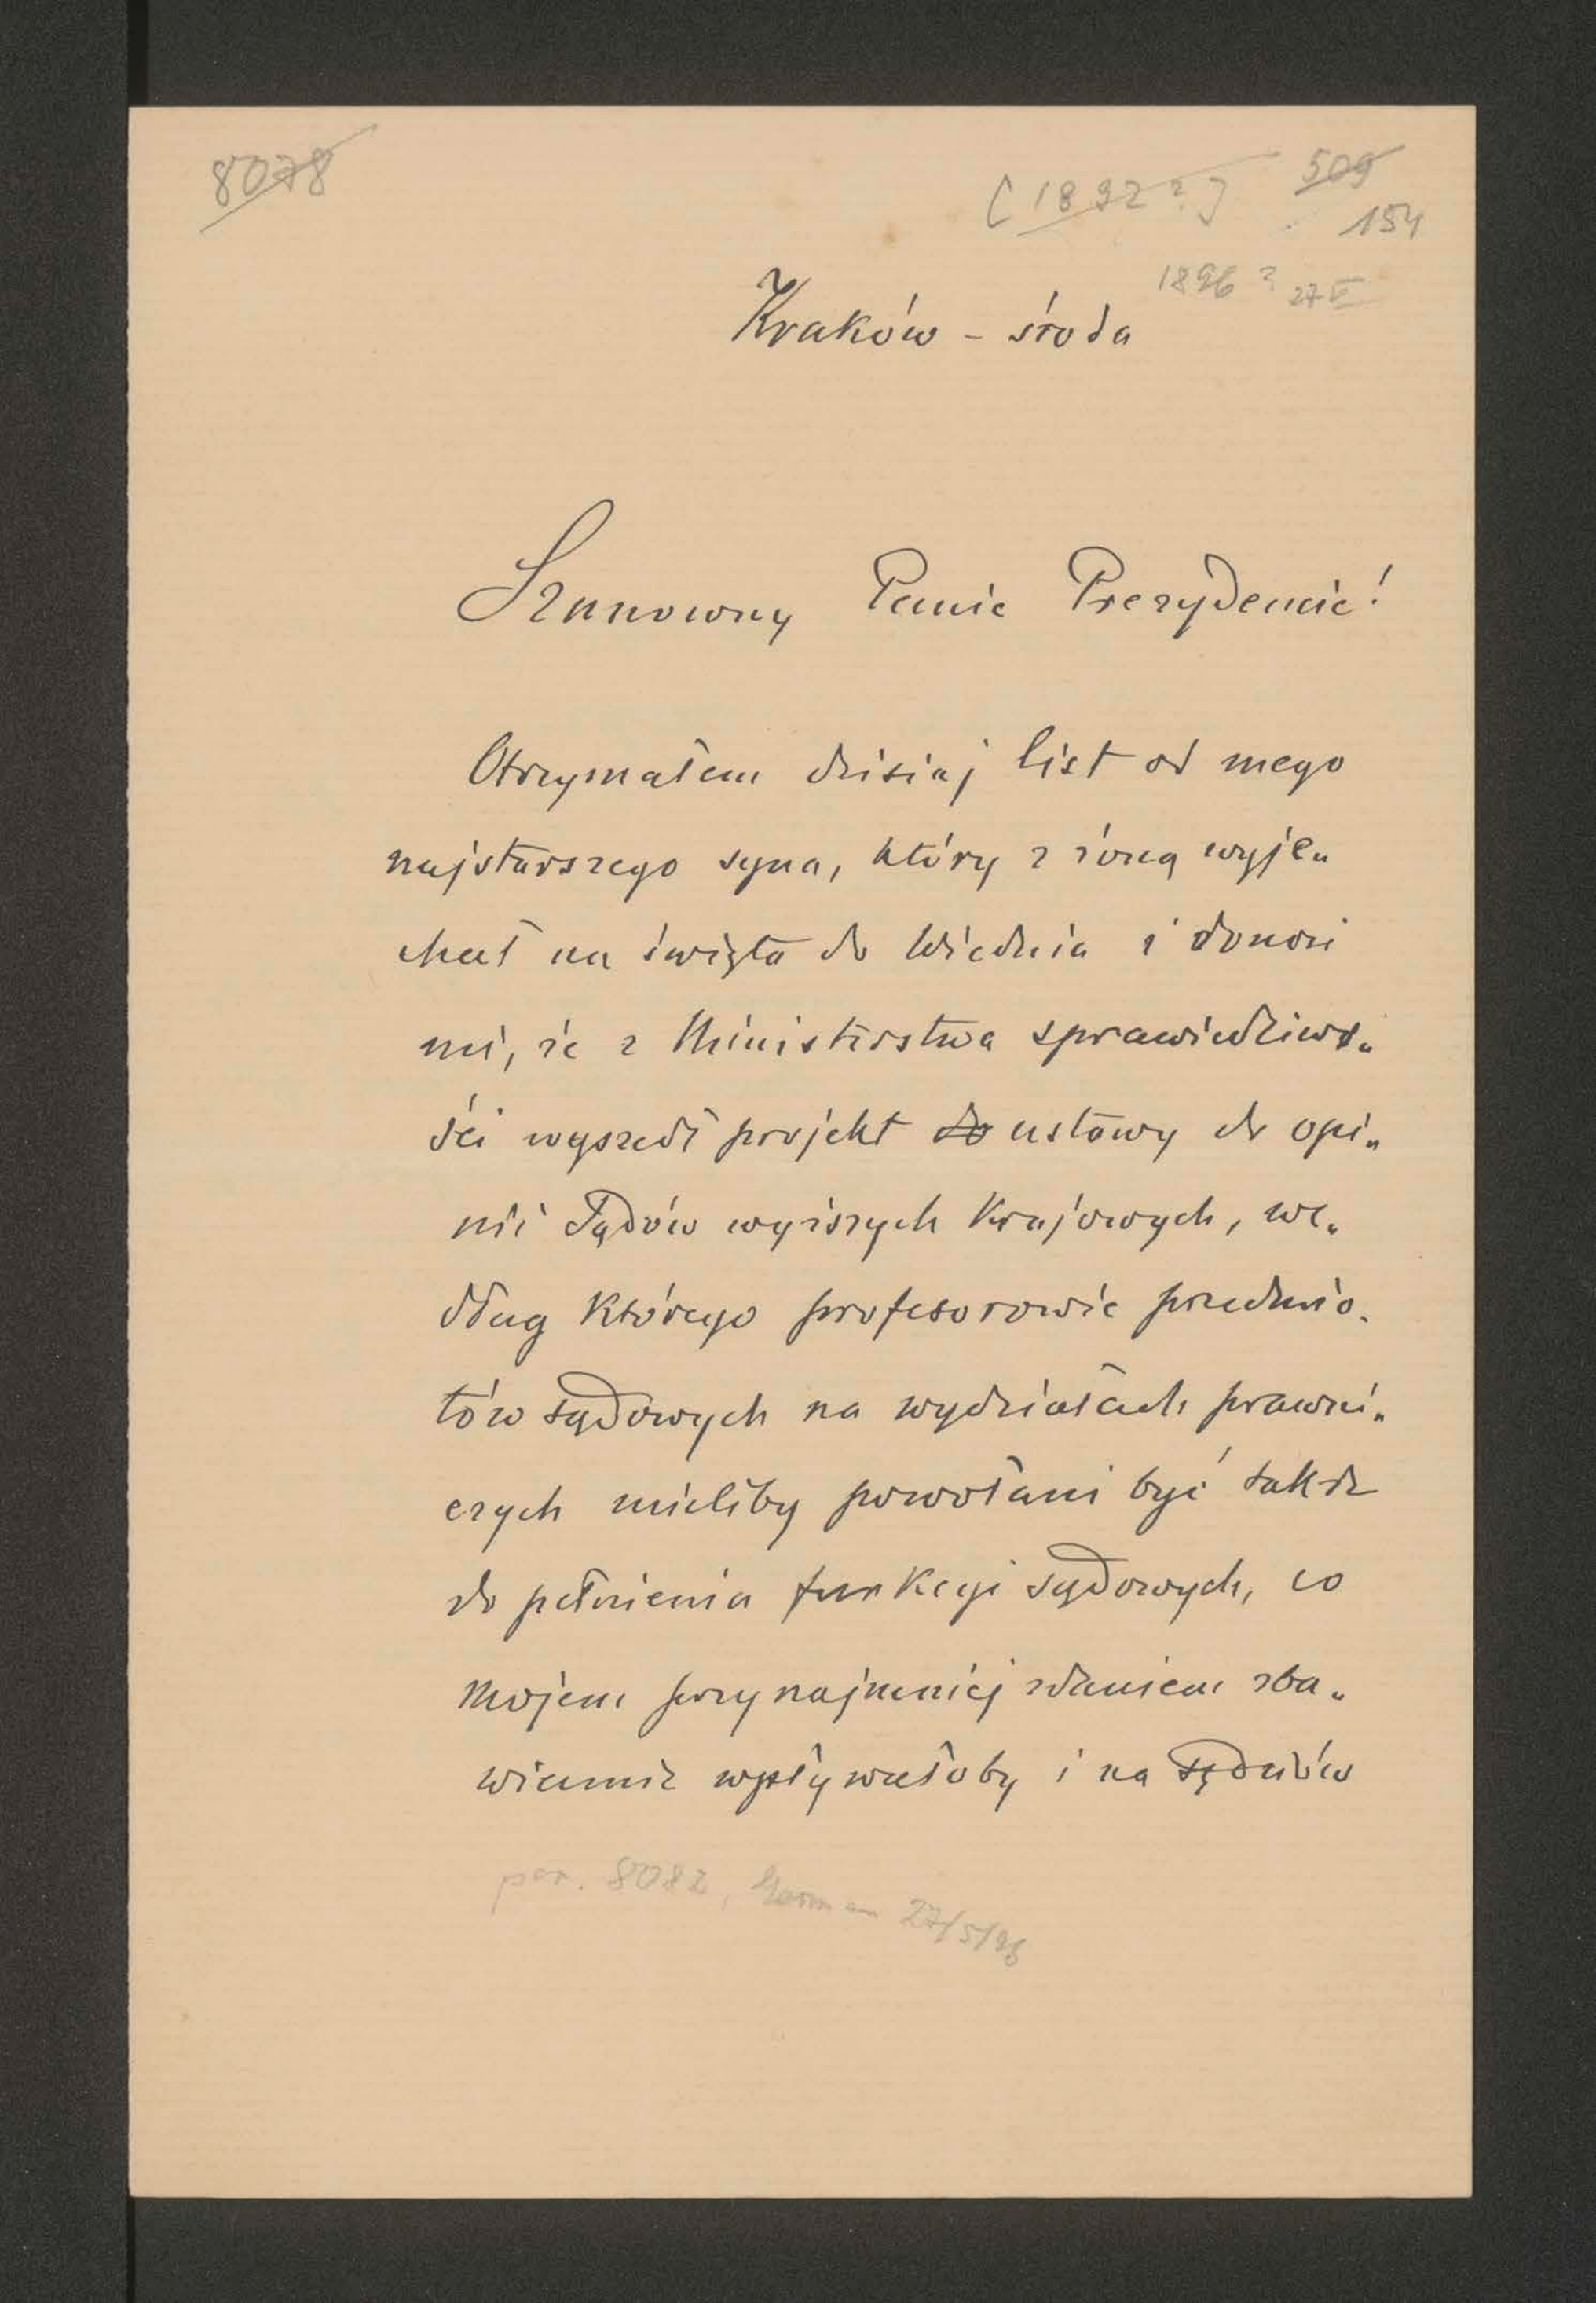 8078
[1892?] 509
154
1896? 27 V
Kraków - środa
Szanowny Panie Prezydencie!
Otrzymałem dzisiaj list od mego
najstarszego syna, który z żoną wyje„
chał na święta do Wiednia i donosi
mi, że z Ministerstwa sprawiedliwo„
ści wyszedł projekt do ustawy do opi„
nii Sądów wyższych krajowych, we„
dług którego profesorowie przedmio„
tów sądowych na wydziałach prawni„
czych mieliby powołani być także
do pełnienia funkcyi sądowych, co
mojem przynajmniej zdaniem zba„
wiennie wpływałoby i na sędziów
por. 8082, 27/5/96